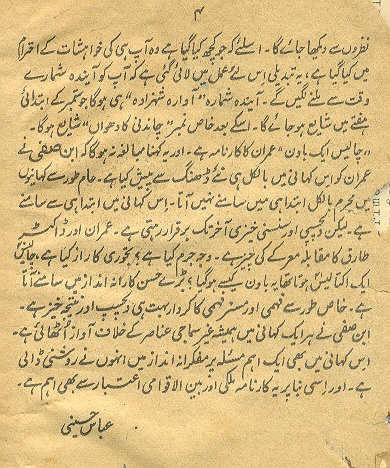 ۴
نظروں سے دیکھا جائے گا۔ اسلئے کہ جو کچھ کیا گیا ہے وہ آپ ہی کی خواہشات کے احترام
میں کیا گیا ہے، یہ تبدیلی اس لئے عمل میں لائی گئی ہے کہ آپ کو آیندہ شمارے
وقت سے ملنے لگیں گے۔ آیندہ شمارہ "آوارہ شہزادہ" ہی ہوگا جو ستمبر کے ابتدائی
ہفتے میں شایع ہو جائے گا۔ اسکے بعد خاص نمبر "چاندنی کا دھواں" شایع ہوگا۔
"چالیس ایک باون" عمران کا کارنامہ ہے۔ اور یہ کہنا مبالغہ نہ ہوگا کہ ابن صفی نے
عمران کو اس کہانی میں بالکل ہی نئے ڈھنگ سے پیش کیا ہے۔ عام طور سے کہانیوں
میں مجرم بالکل ابتدا ہی میں سامنے نہیں آتا۔ اس کہانی میں ابتدا ہی سے سامنے
ہے۔ لیکن دلچسپی اور سنسنی خیزی آخر تک برقرار رہتی ہے۔ عمران اور ڈاکٹر
طارق کا مقابلہ معرکے کی چیز ہے۔ وہ جرم کیا ہے؟ تجوری کا راز کیا ہے۔ چالیس
ایک اکتالیس ہوتا تھا یہ باون کیسے ہوگیا؟ بڑے حسن کارانہ انداز میں سامنے آتا
ہے۔ خاص طور سے فہمی اور مسز فہمی کا کردار بہت ہی دلچسپ اور نتیجہ خیز ہے۔
ابن صفی نے ہر ایک کہانی میں ہمیشہ غیر سماجی عناصر کے خلاف آواز اُٹھائی ہے۔
اس کہانی میں بھی ایک اہم مسئلہ پر مفکرانہ انداز میں انہوں نے روشنی ڈالی
ہے۔ اور اسی بنا پر یہ کارنامہ ملکی اور بین الاقوامی اعتبار سے بھی اہم ہے۔
عباس حسینی